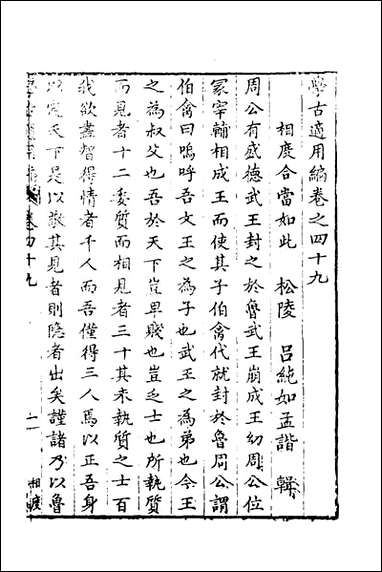 學古適用編卷之四十九
相度合當如此　松陵　呂純如孟諧　輯
周公有盛德武王封之於魯武王崩成王幼周公位
冢宰輔相成王而使其子伯禽代就封於魯周公謂
伯禽曰嗚呼吾文王之為子也武王之為弟也今王
之為叔父也吾於天下豈卑賤也豈乏士也所執質
而見者十二委質而相見者三十其未執質之士百
我欲盡智得情者千人而吾僅得三人焉以正吾身
以定天下是以敬其見者則隱者出矣謹諸乃以魯
卷四十九
一
相度